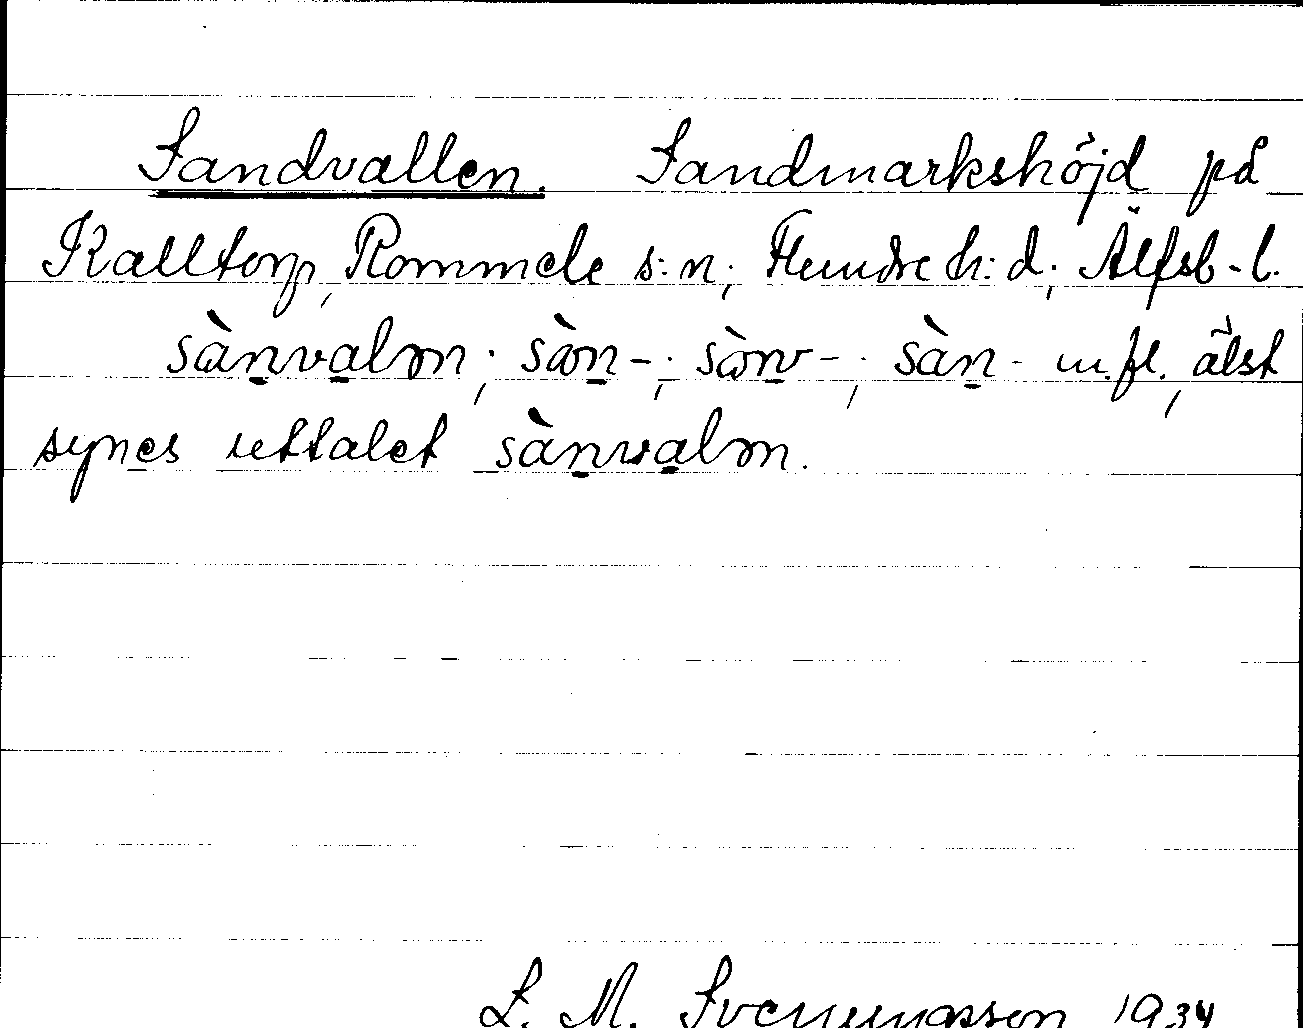 Sandvallen. Sandmarkshöjd på
Kalltorp, Rommele s:n; Flundre h:d; Älfsb-l.
sànvalm; sòn-; sònv-; sàn- m.fl., älst
synes uttalet sànvalm.
L. M. Svenungsson 1934